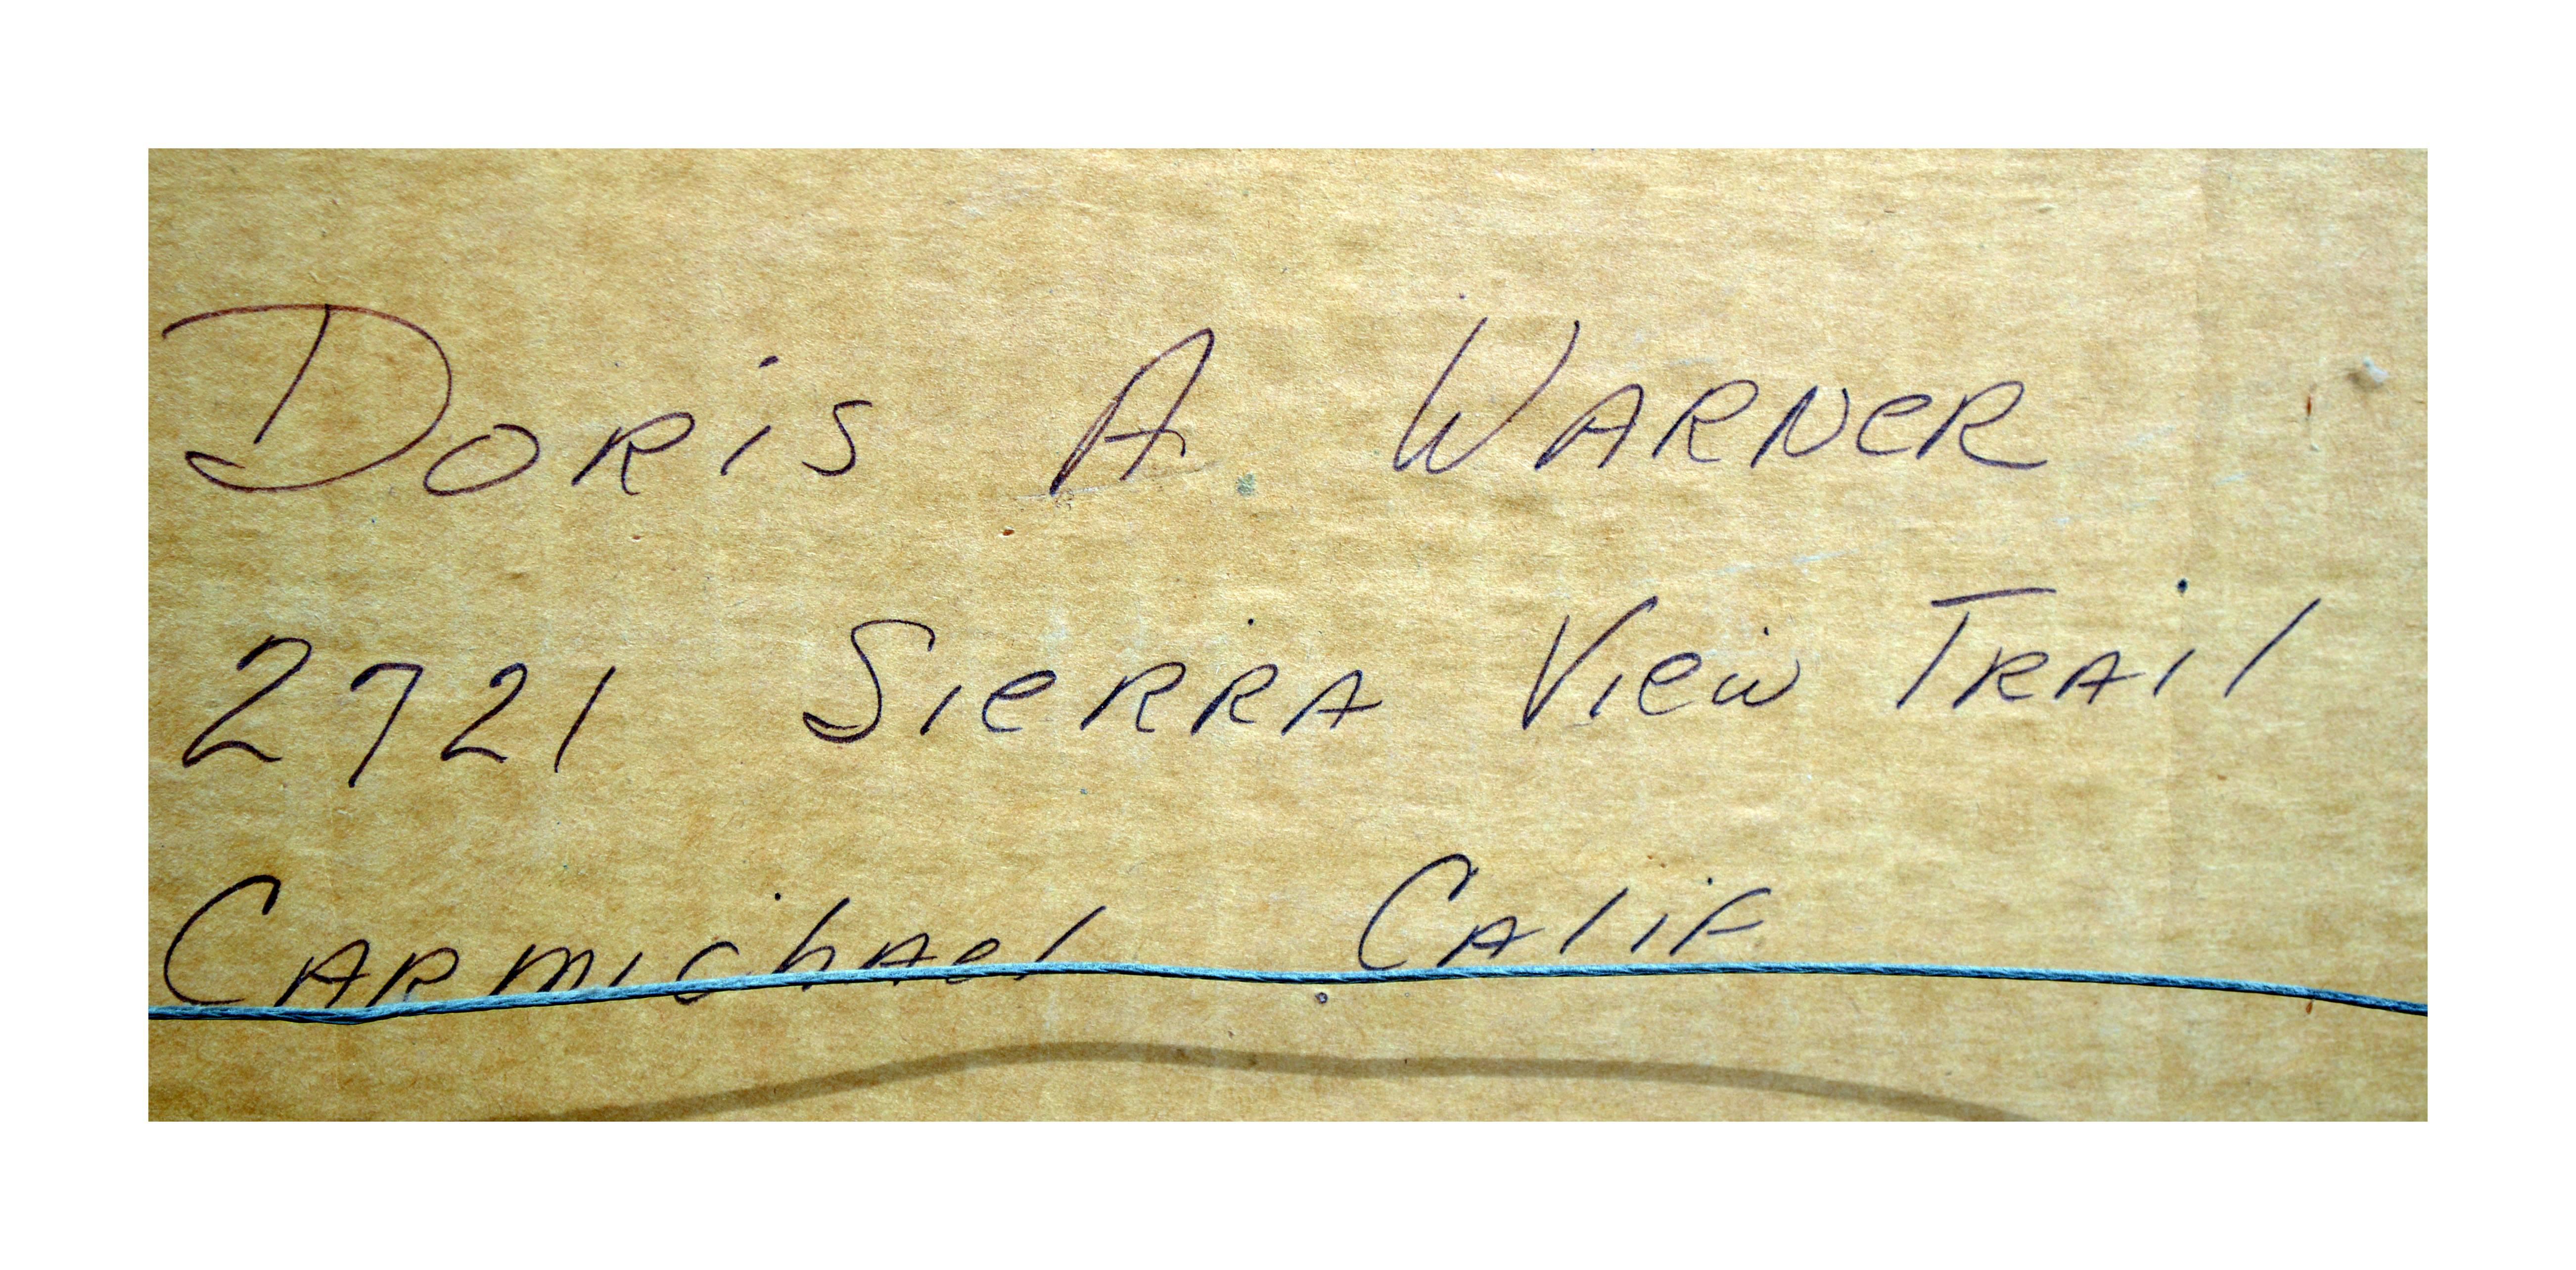 Doris A. Warner
2721 Sierra View Trail
Carmichael Calif